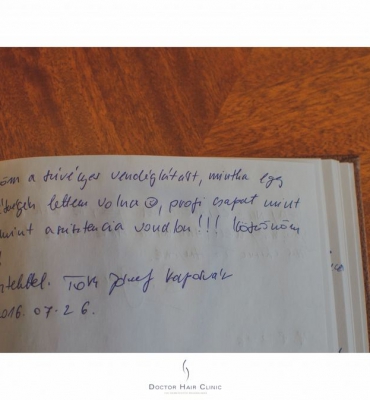 a szívélyes vendéglátást, mintha egy
lettem volna ☺, profi csapat mint
mint asszisztencia vonalon!!! Köszönöm
Tóth József Kaposvár
2016.07.26.
DOCTOR HAIR CLINIC